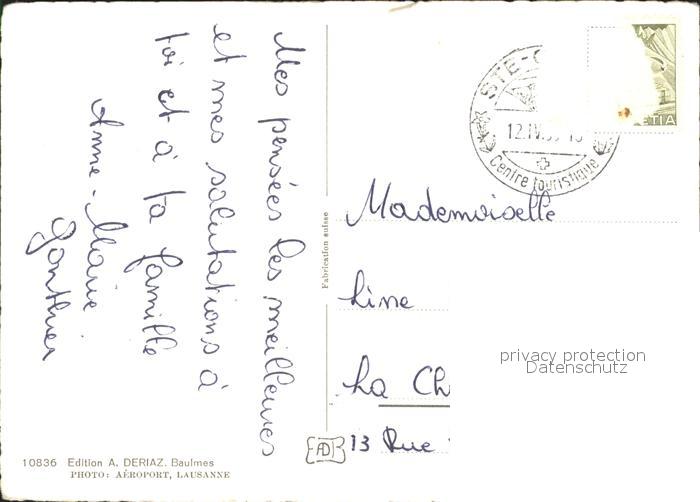 Mes pensées les meilleures
et mes salutations à
toi et à ta famille
Anne-Marie
Gonthier
10836 Edition A. DERIAZ. Baulmes
PHOTO: AÉROPORT, LAUSANNE
Fabrication suisse
AD
STE-C
12.IV.
Centre touristique
HELVETIA
Mademoiselle
Line
La Ch
13 Rue
privacy protection
Datenschutz